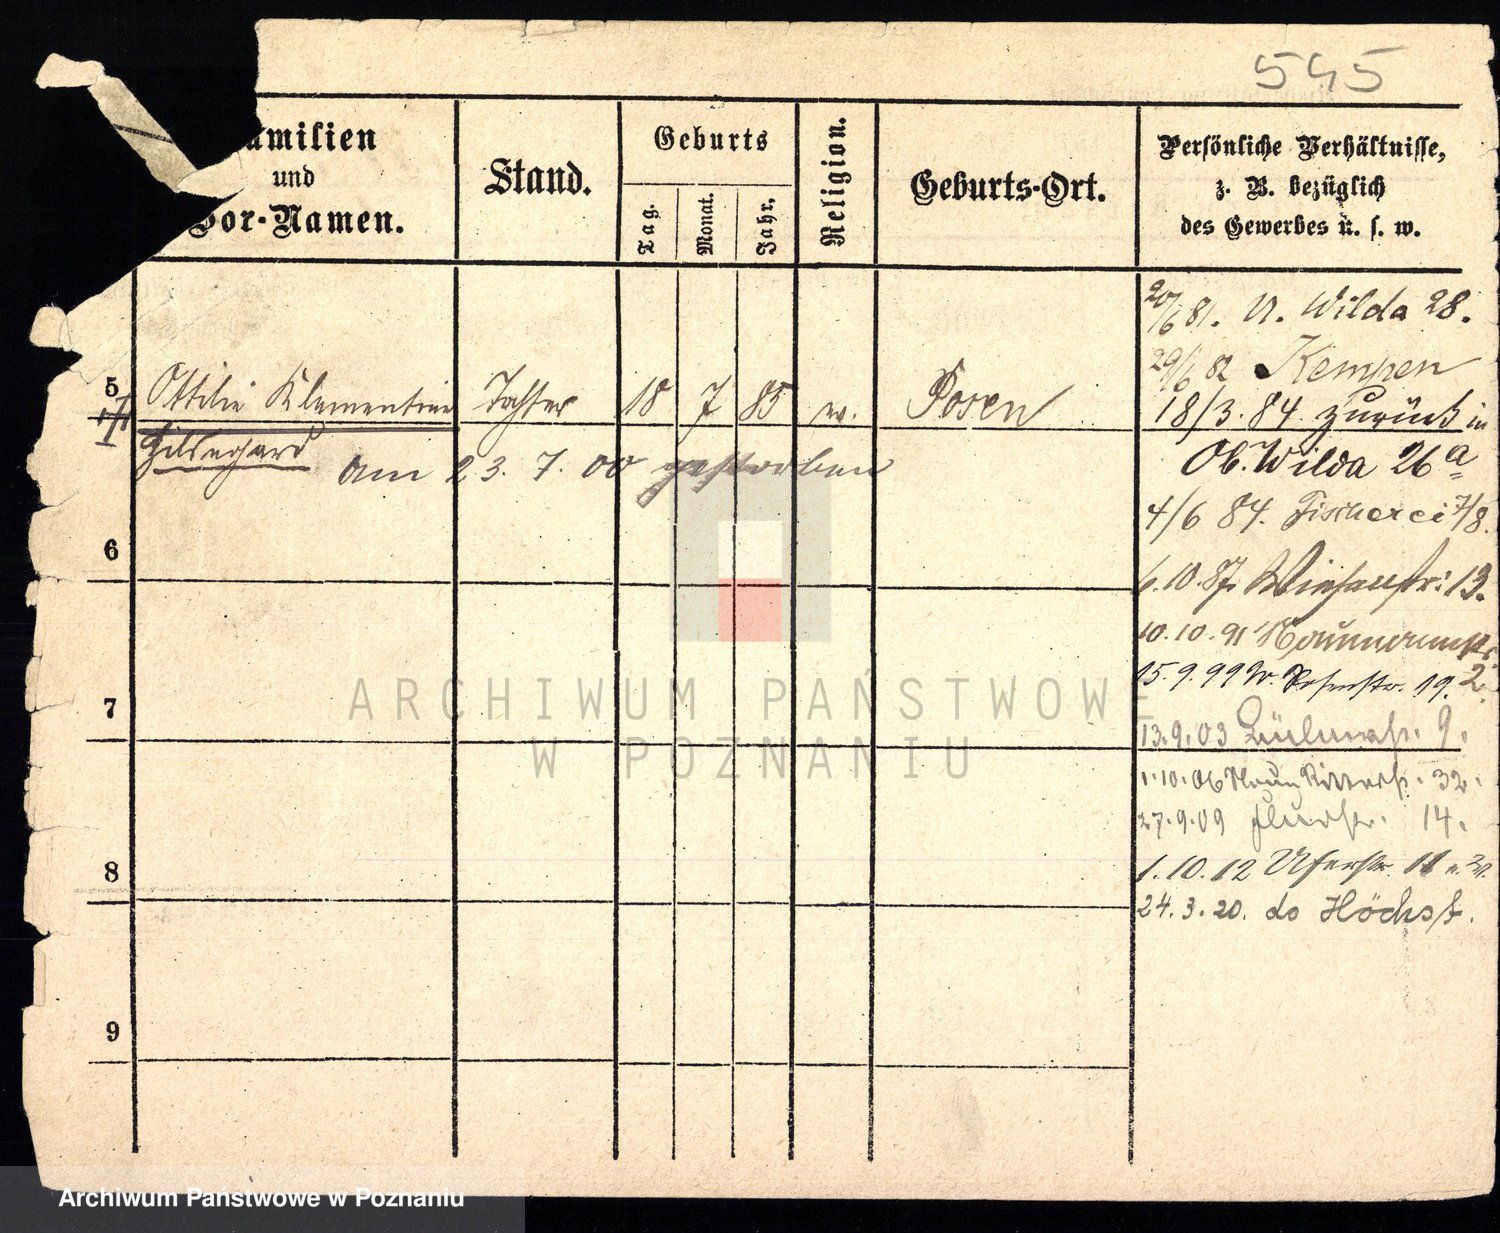 545
amilien
und
Vor-Namen.
Stand.
Geburts
Tag.
Monat.
Jahr.
Religion.
Geburts-Ort.
Persönliche Verhältnisse,
z. B. bezüglich
des Gewerbes u. s. w.
5
Ottilie Klementine Tochter 18 7 85 w. Posen
Hildegard
am 23. 7. 00 gestorben
6
7
8
9
20/6 81. U. Wilda 28.
29/6 82 Kempen
18/3. 84. zurück in
Ob. Wilda 26a
4/6 84. Fischerei 7/8.
6.10.87. 13.
10.10.91 Naumannstr.
2.
15.9.99 19.
13.9.03 9.
1.10.06 Ritterstr. 32.
27.9.09 Flurstr. 14.
1.10.12 Uferstr. 11
24.3.20. do Höchst.
ARCHIWUM PAŃSTWOWE
W POZNANIU
Archiwum Państwowe w Poznaniu